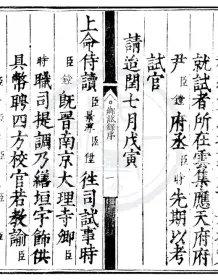 就試者所在雲集應天府
尹臣鐩府丞臣時先期以考
試官
請迺閏七月戊寅
上命侍讀臣
徃司試事時
臣既晉南京大理寺卿臣
時職司提調乃繕垣宇飾供
具幣聘四方校官若教諭臣